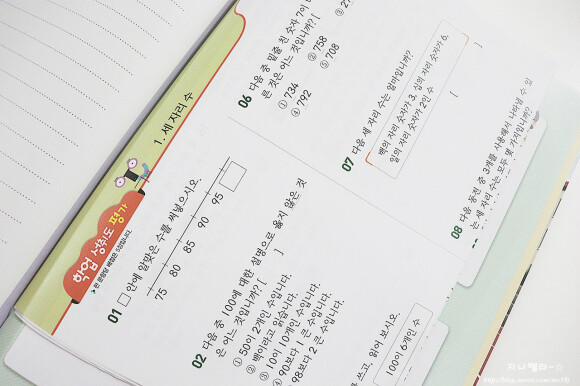 1. 세 자리 수
학업 성취도 평가
▶ 한 문항당 배점은 5점입니다.
01 □ 안에 알맞은 수를 써넣으시오.
75 80 85 90 95
02 다음 중 100에 대한 설명으로 옳지 않은 것
은 어느 것입니까? [ ]
① 50이 2개인 수입니다.
② 백이라고 읽습니다.
③ 10이 10개인 수입니다.
④ 90보다 1 큰 수입니다.
98보다 2 큰 수입니다.
쓰고, 읽어 보시오.
100이 6개인 수
06 다음 중 밑줄 친 숫자 7이
른 것은 어느 것입니까? [
① 734
② 758
③ 27
④ 792
⑤ 708
07 다음 세 자리 수는 얼마입니까?
백의 자리 숫자가 3, 십의 자리 숫자가 6,
일의 자리 숫자가 2인 수
[ ]
08 다음 동전 중 3개를 사용해서 나타낼 수 있
는 세 자리 수는 모두 몇 가지입니까?